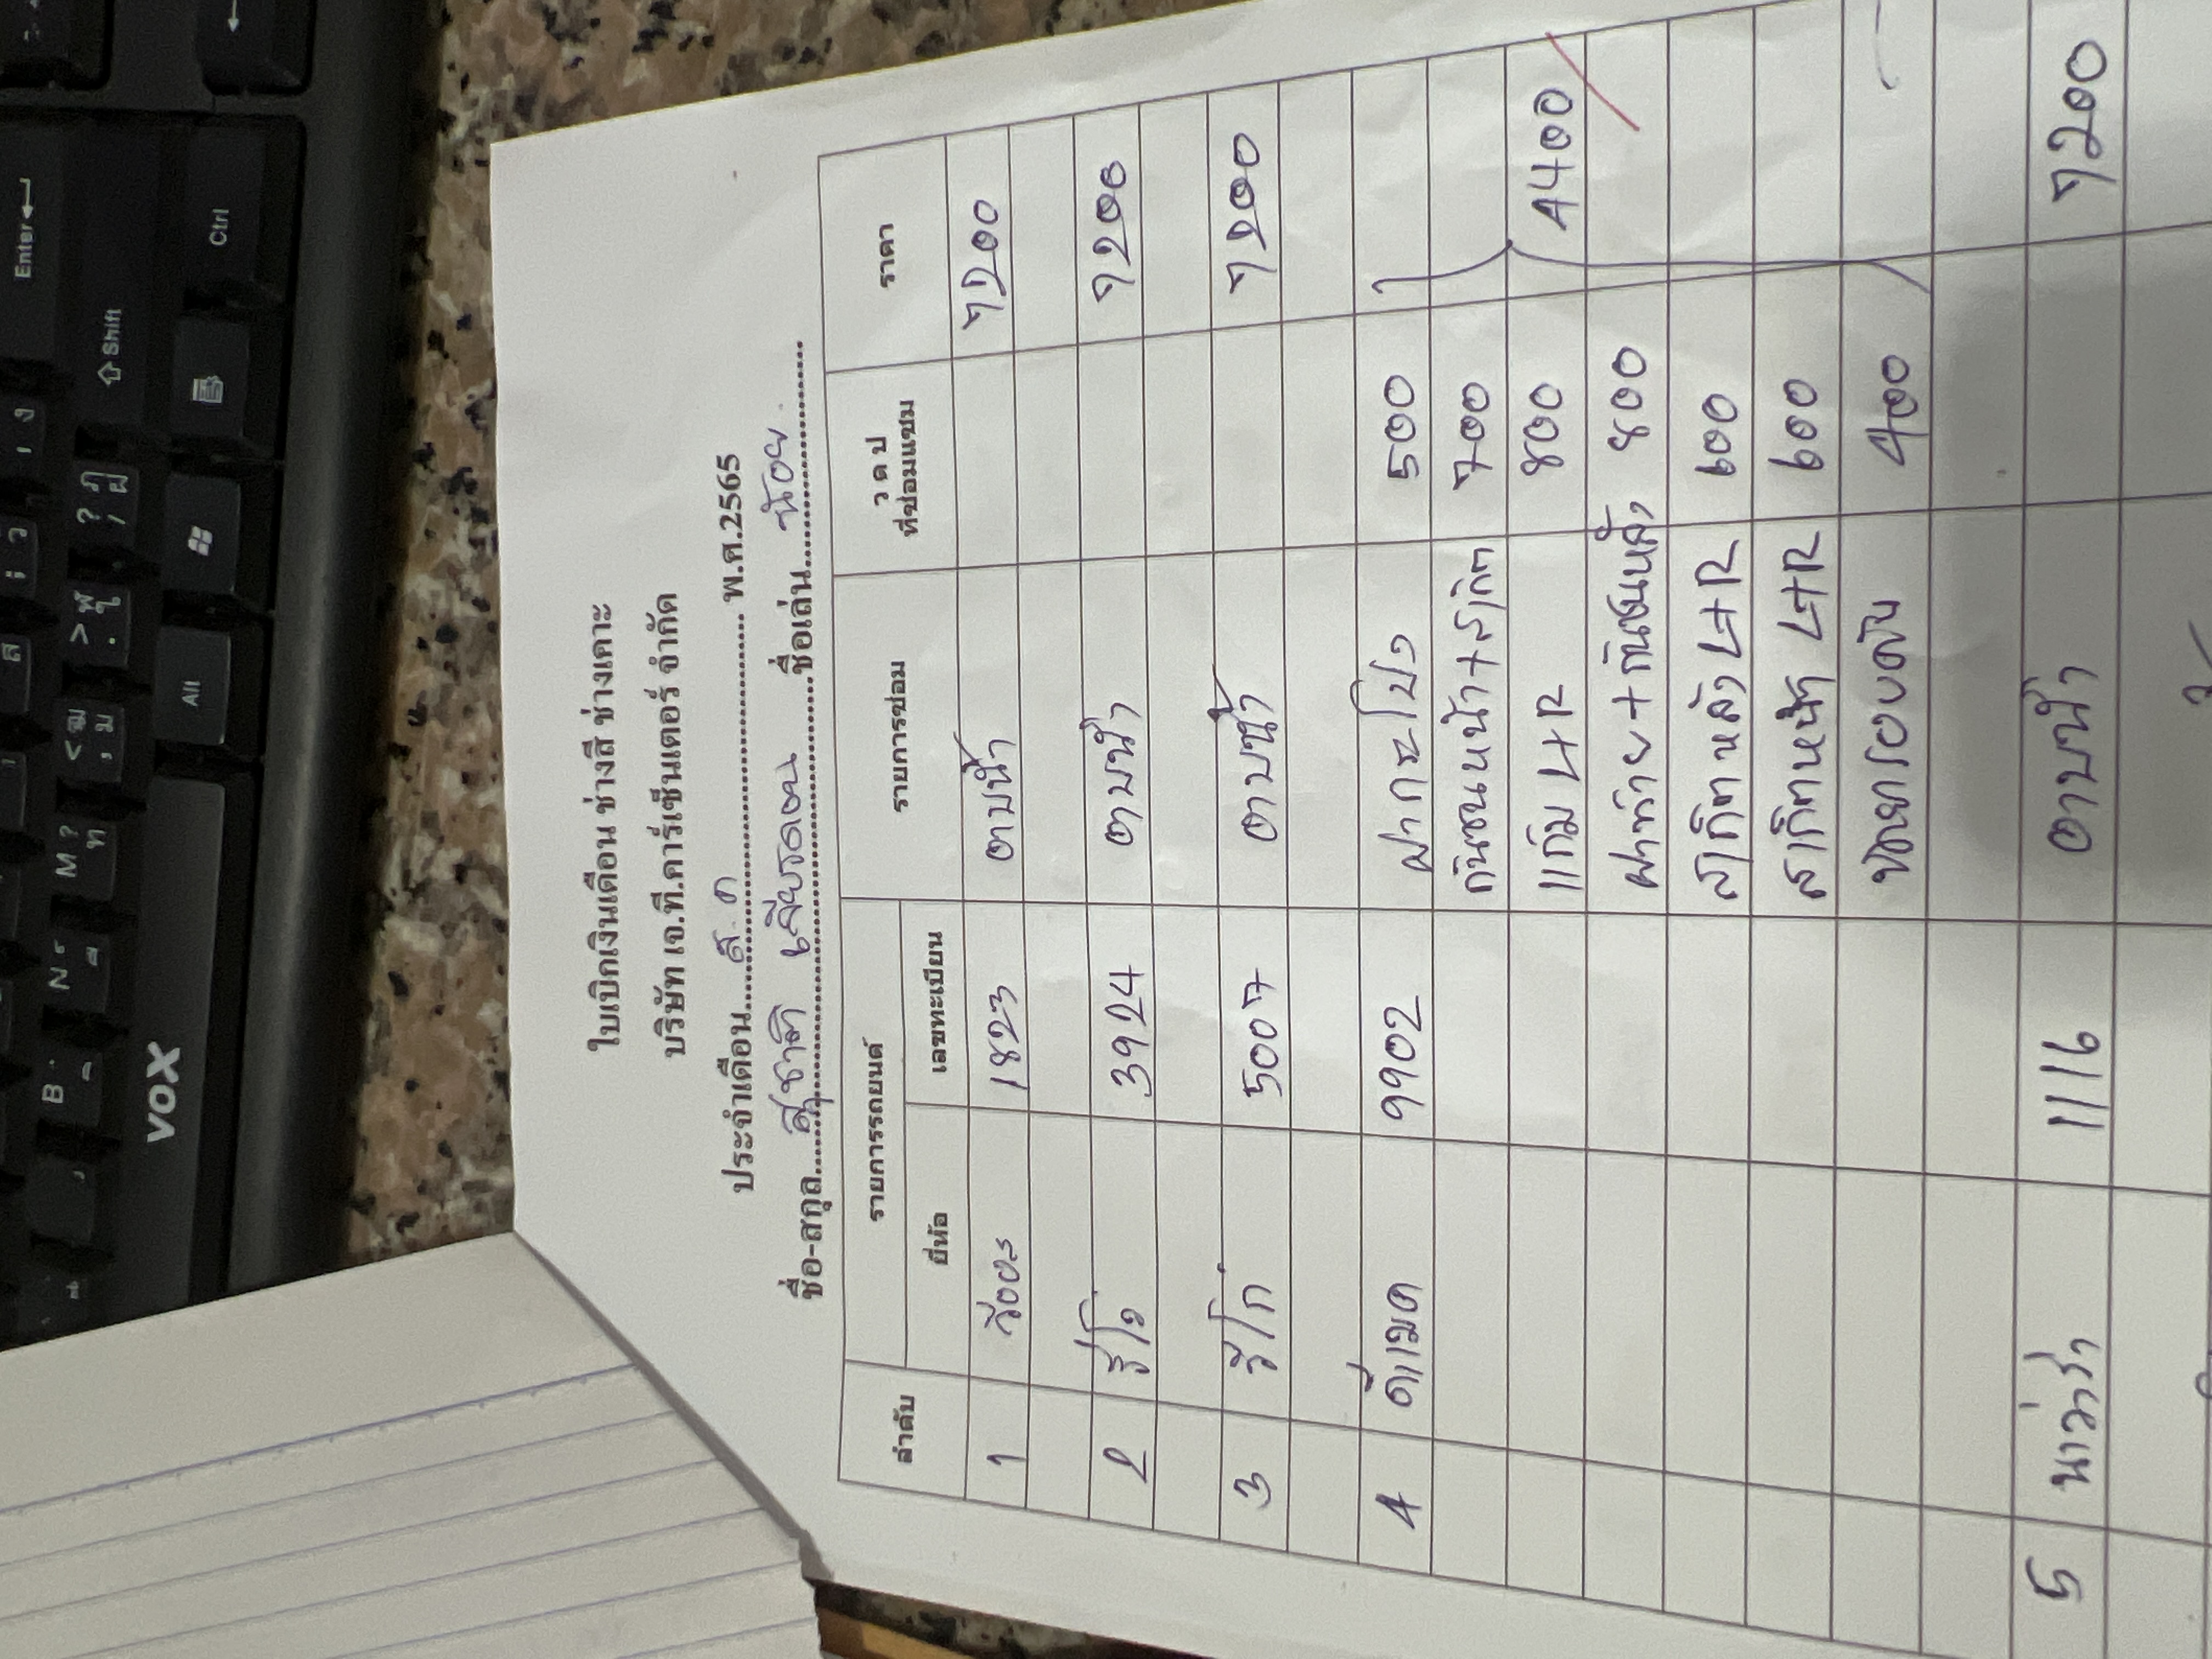 ใบเบิกเงินเดือน ช่างสี ช่างเคาะ
บริษัท เจ.ที.คาร์เซ็นเตอร์ จำกัด
ประจำเดือน......ส.ค............ พ.ศ.2565
ชื่อ-สกุล......สุชาติ ............ชื่อเล่น......น้อย......
ลำดับ รายการรถยนต์ รายการซ่อม ว ด ป ที่ซ่อมแซม ราคา
ยี่ห้อ เลขทะเบียน
1 วีออส 1823 อาบน้ำ 7200
2 รีโว่ 3924 อาบน้ำ 7200
3 วีโก้ 5007 อาบน้ำ 7200
4 ดีแมค 9902 ฝากระโปง 500
กันชนหน้า+สเกิต 700
แก้ม L+R 800 4400
ฝาท้าย+กันชนหลัง 800
สเกิตหลัง L+R 600
สเกิตหน้า L+R 600
400
5 นาวาร่า 1116 อาบน้ำ 7200
Enter
Shift
Ctrl
All
VOX
B
N
M